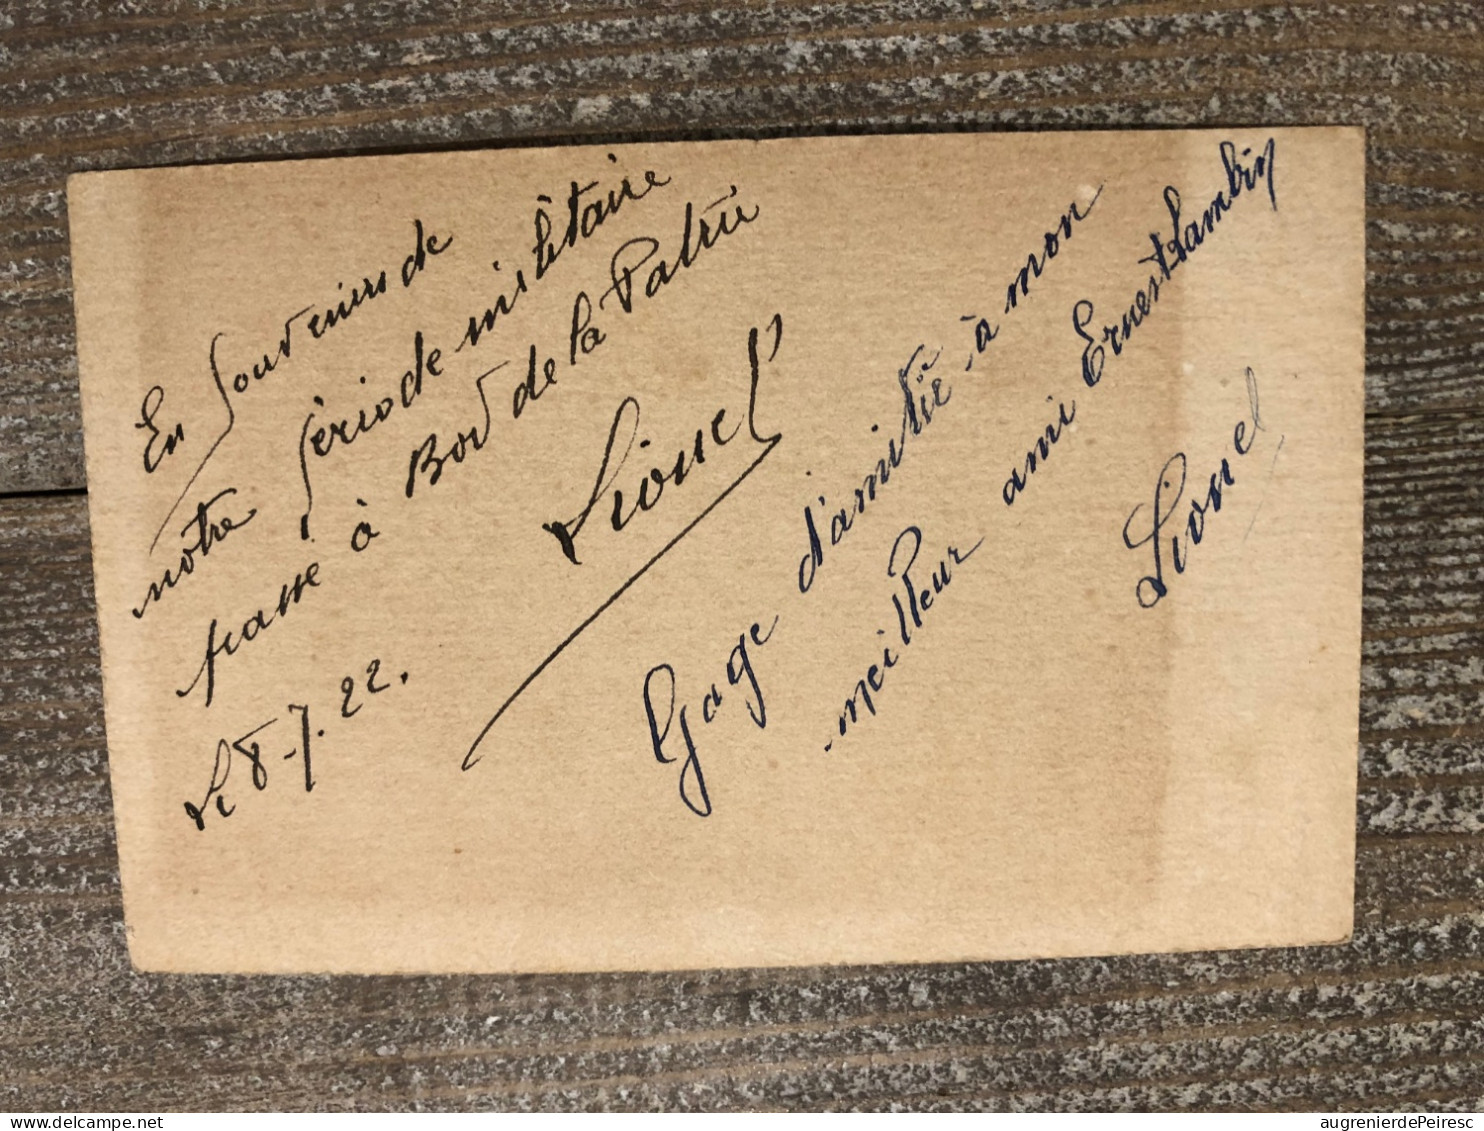 En Souvenirs de
notre période militaire
passé à Bord de la Patrie
Lionel
Le 8-7.22.
Gage d'amitié à mon
meilleur ami Ernest Lambin
Lionel
augrenierdePeiresc